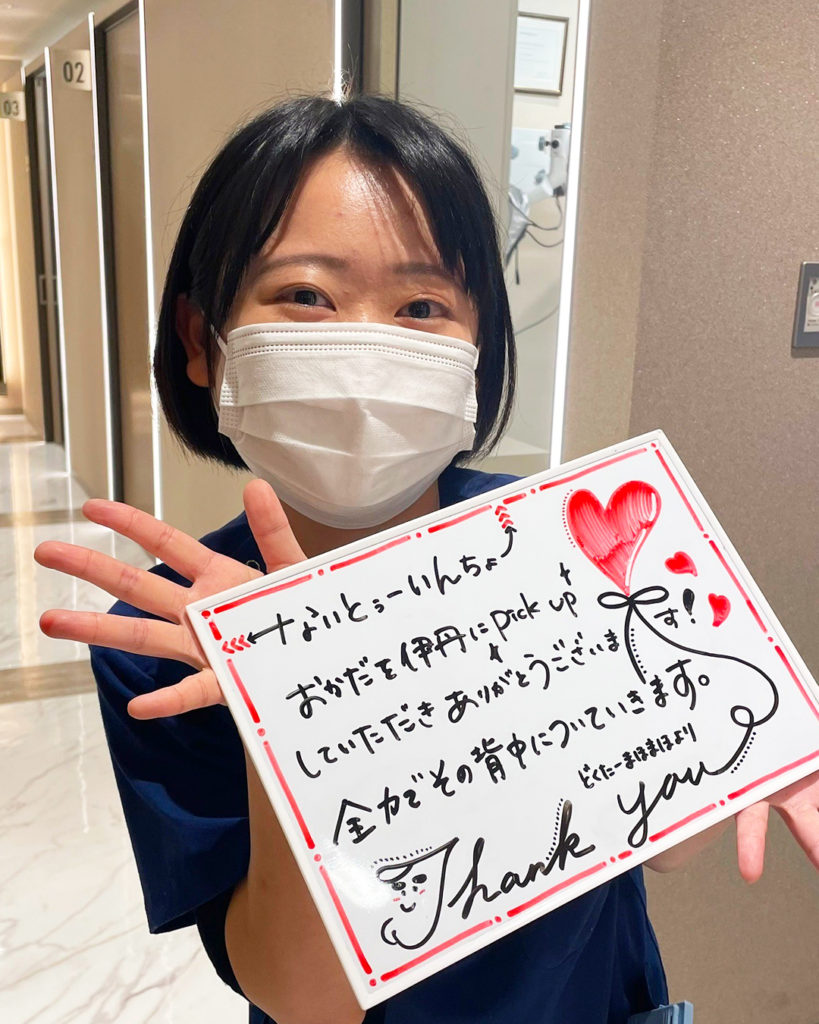 03
02
ないとぅーいんちょ
おかだを伊丹にpick up
していただきありがとうございます!
全力でその背中についていきます。
どくたーまほまほより
Thank you